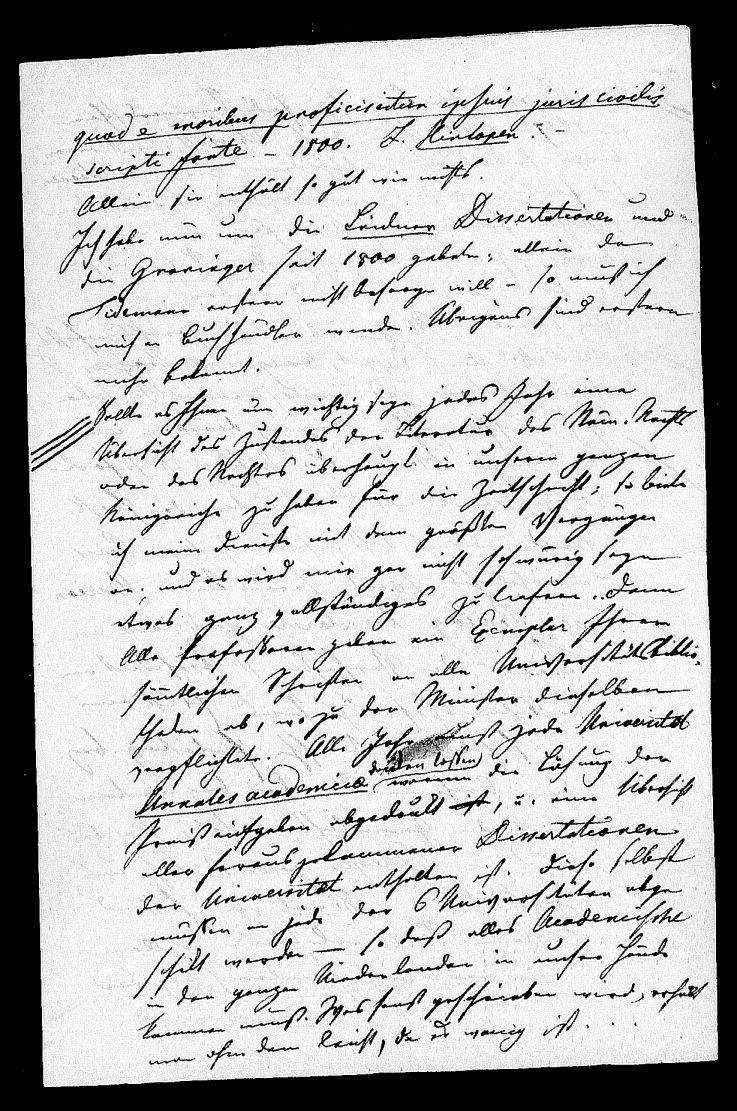 quod e moribus proficiscitur ipsius juris civilis
scripti fonte – 1800. L. Hinlopen. –
Allein sie enthält so gut wie nichts.
Ich habe nun um die Leidner Dissertationen und
die Groninger seit 1800 gebeten; allein da
erstere nicht besorgen will – so muß ich
mich an Buchhändler wenden. Übrigens sind erstere
mehr bekannt.
Sollte es Ihnen um wichtig seyn jedes Jahr eine
Übersicht des Zustandes der Literatur des Röm. Rechts
oder des Rechtes überhaupt in unserm ganzen
Königreiche zu haben für die Zeitschrift; so biete
ich meine Dienste mit dem größten Vergnügen
an; und es wird mir gar nicht schwierig seyn
etwas ganz vollständiges zu liefern. Denn
Alle Professoren geben ein Exemplar Ihrer
sämtlichen Schriften an alle Universitätsbiblio-
theken ab, wozu der Minister dieselben
verpflichtete. Alle Jahr muß jede Universität
Annales academici drucken lassen worinn die Lösung der
Preißaufgaben abgedruckt ist, u. eine Übersicht
aller herausgekommener Dissertationen
der Universität enthalten ist. Diese selbst
müssen an jede der 6 Universitäten abge
schikt werden – so daß alles Academische
in den ganzen Niederlanden in unsre Hände
kommen muß. Was sonst geschrieben wird, erhält
man ohne dem leicht, da es wenig ist . . .